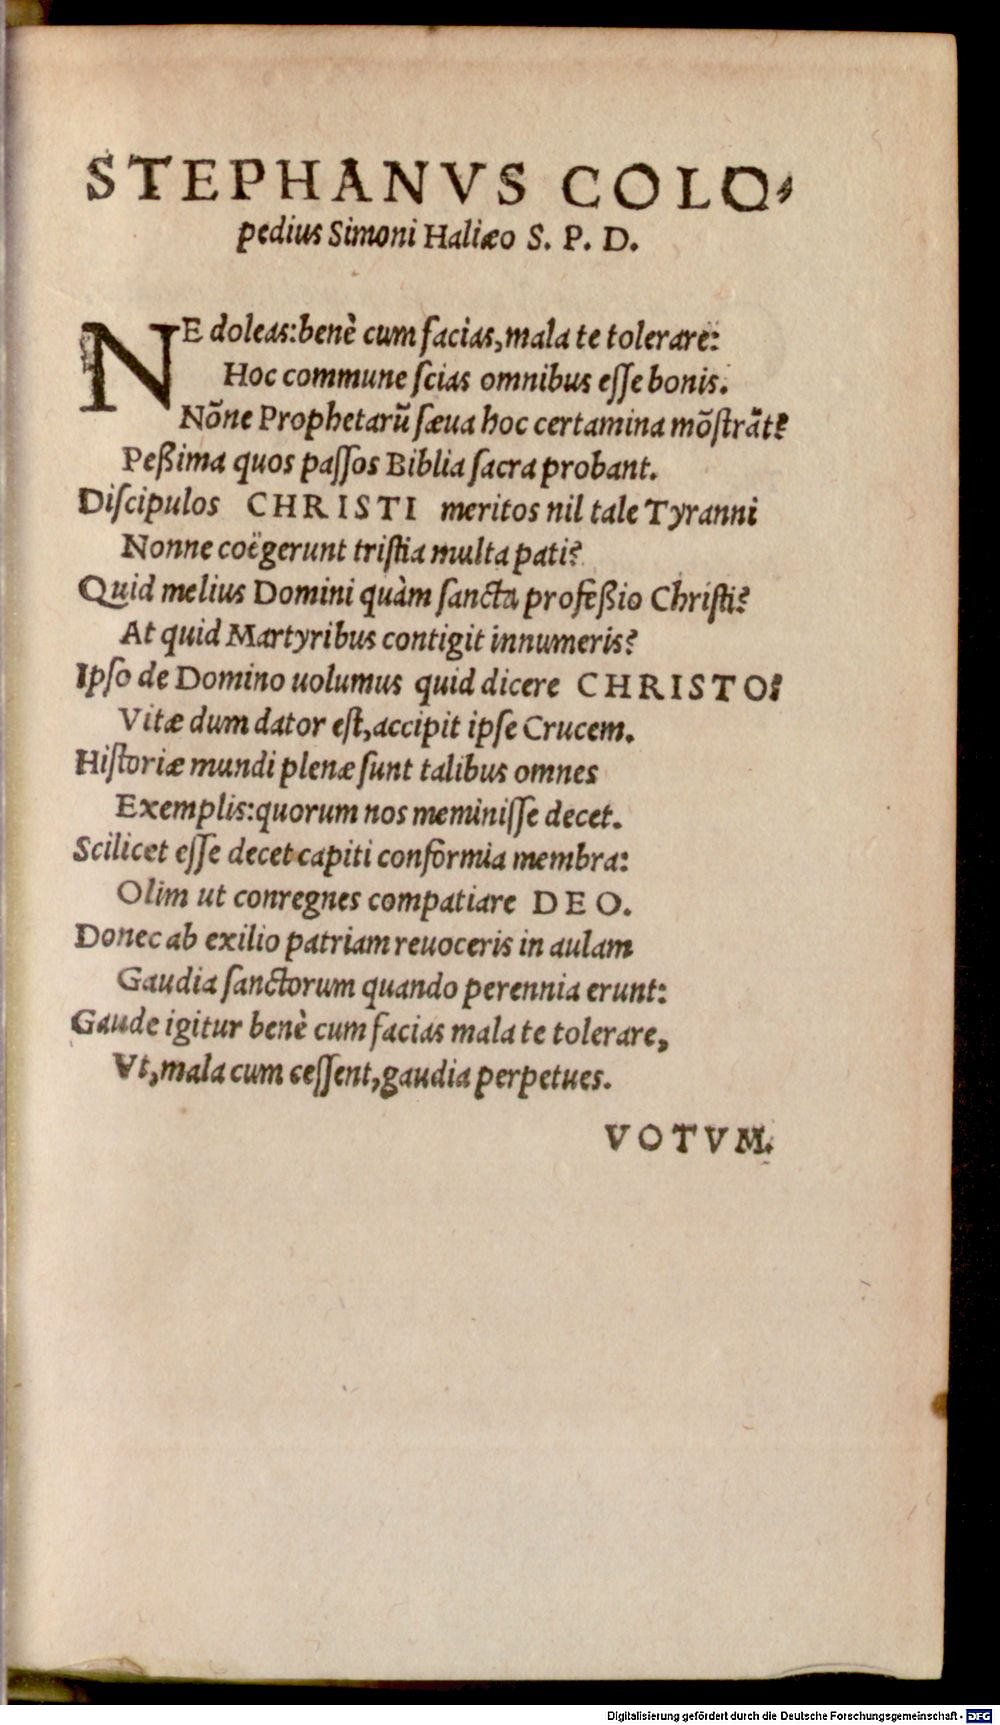 STEPHANVS COLO-
pedius Simoni Haliæo S. P. D.
NE doleas:benè cum facias,mala te tolerare:
Hoc commune ſcias omnibus eſſe bonis.
Nõne Prophetarũ ſæua hoc certamina mõſtrãt?
Peßima quos paſſos Biblia ſacra probant.
Diſcipulos CHRISTI meritos nil tale Tyranni
Nonne coëgerunt triſtia multa pati?
Quid melius Domini quàm ſancta profeßio Chriſti?
At quid Martyribus contigit innumeris?
Ipſo de Domino uolumus quid dicere CHRISTO?
Vitæ dum dator eſt,accipit ipſe Crucem.
Hiſtoriæ mundi plenæ ſunt talibus omnes
Exemplis:quorum nos meminiſſe decet.
Scilicet eſſe decet capiti conformia membra:
Olim ut conregnes compatiare DEO.
Donec ab exilio patriam reuoceris in aulam
Gaudia ſanctorum quando perennia erunt:
Gaude igitur benè cum facias mala te tolerare,
Vt,mala cum ceſſent,gaudia perpetues.
VOTVM.
Digitalisierung gefördert durch die Deutsche Forschungsgemeinschaft - DFG